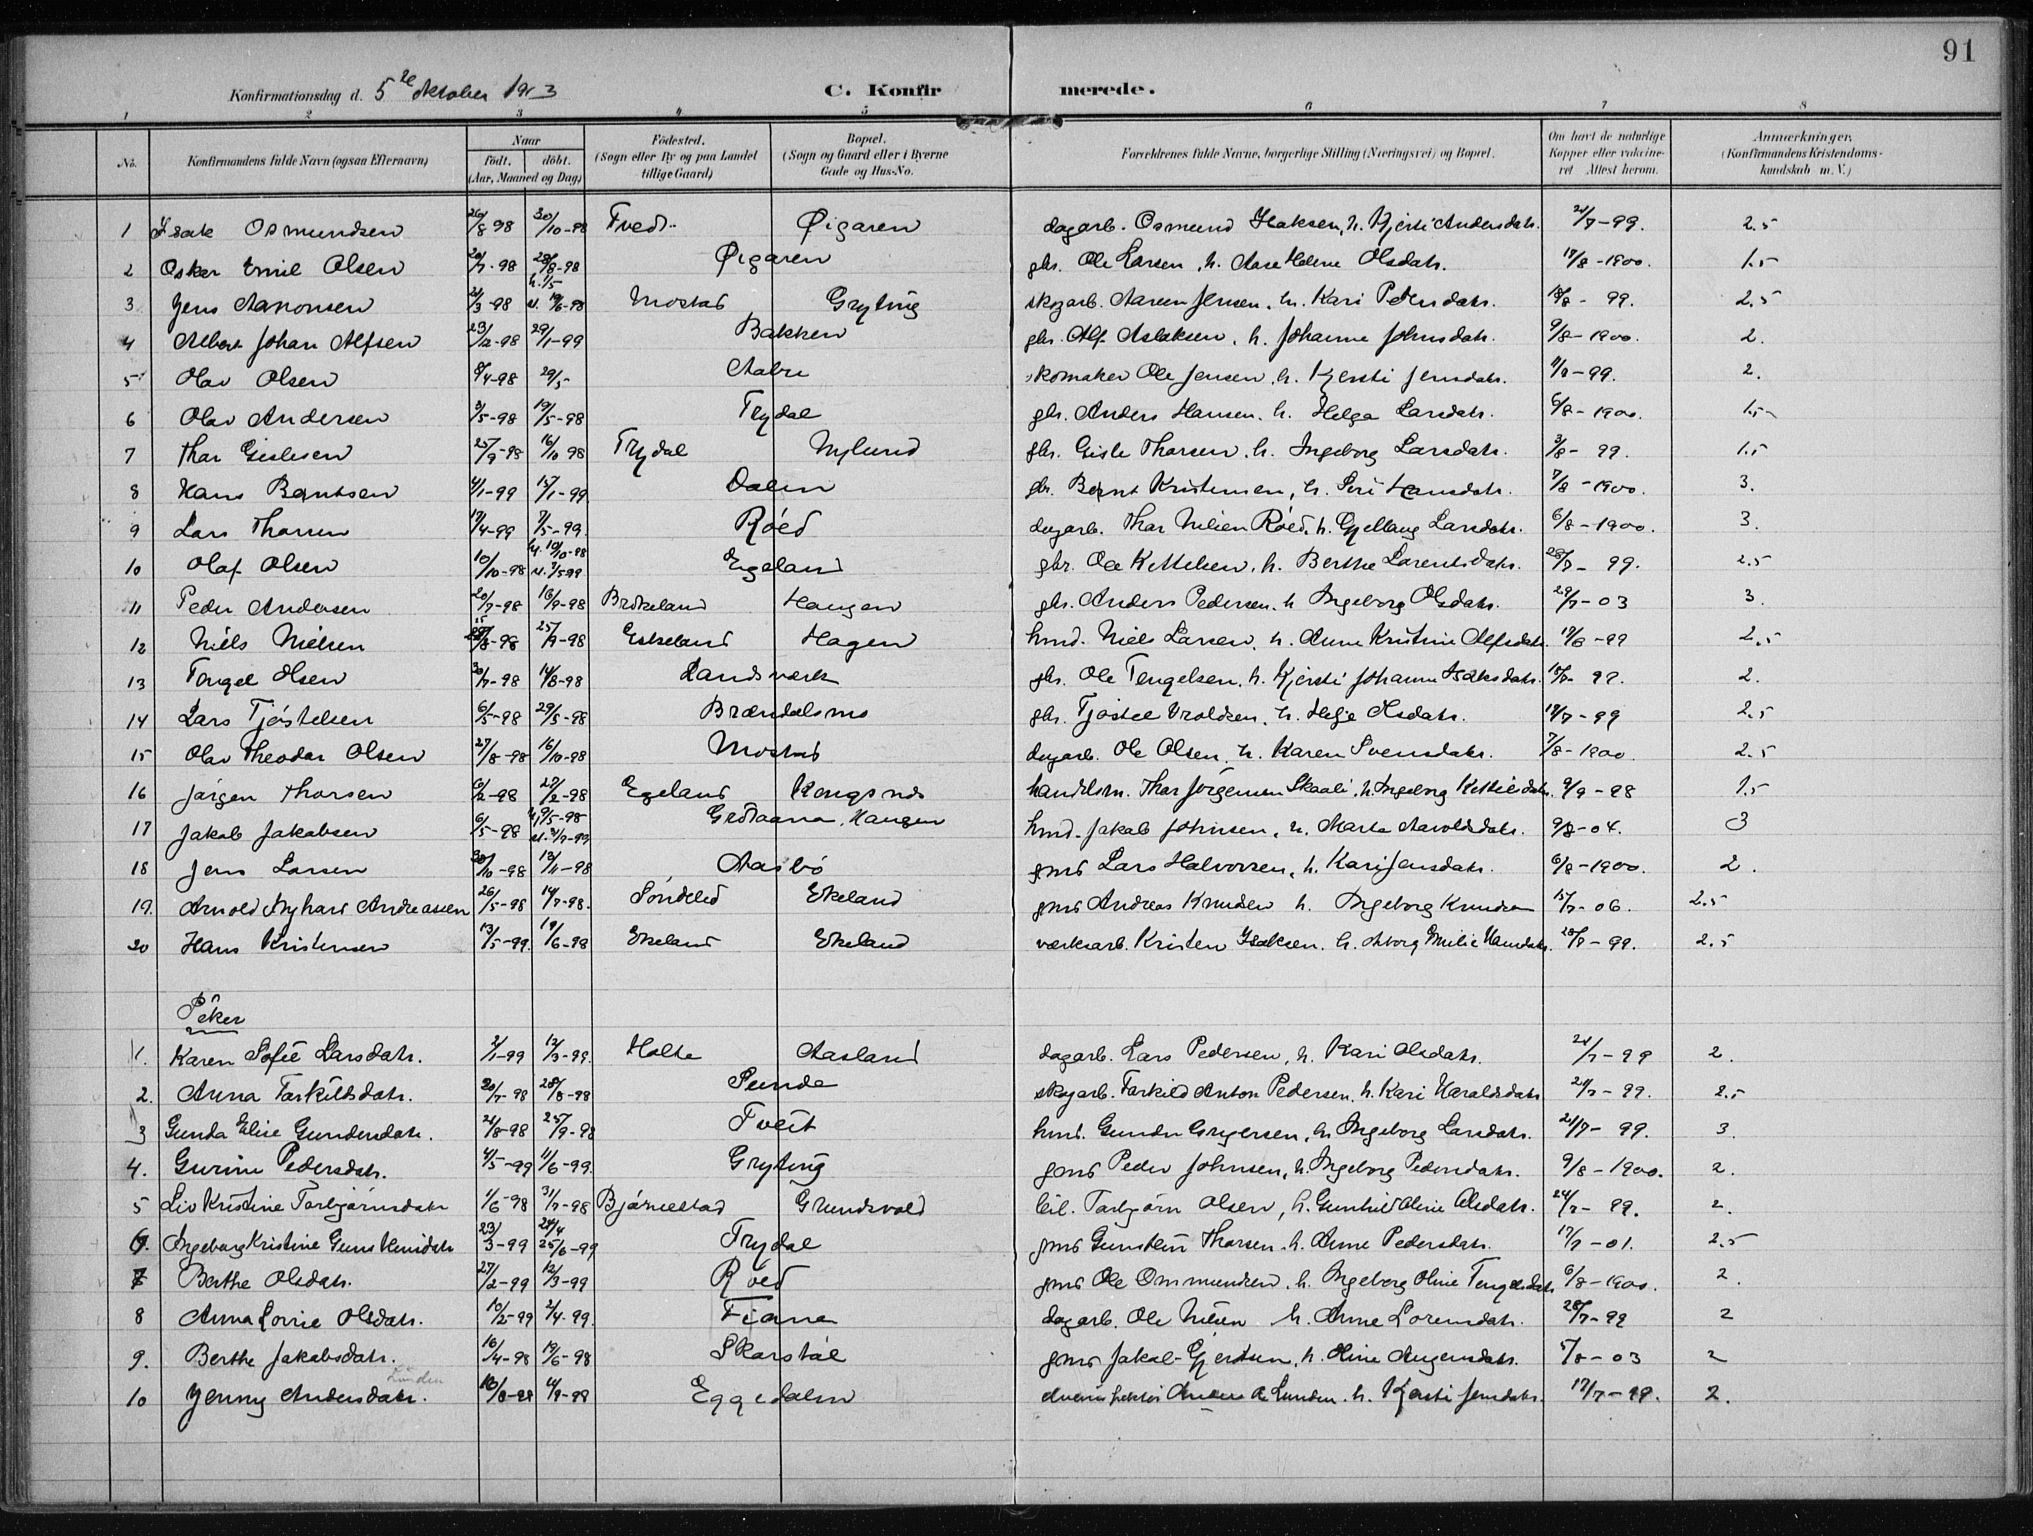 91
Konfirmationsdag d. 5te Oktober 1913 C. Konfirmerede.
1 2 3 4 5 6 7 8
No. Konfirmandens fulde Navn (ogsaa Efternavn) Naar födt. döbt. (Aar, Maaned og Dag) Födested. (Sogn eller By og paa Landet tillige Gaard) Bopæl. (Sogn og Gaard eller i Byerne Gade og Hus-No. Forældrenes fulde Navne, borgerlige Stilling (Næringsvei) og Bopæl. Om havt de naturlige Kopper eller vaksineret. Attest herom. Anmærkninger. (Konfirmandens Kristendomskundskab m. V.)
1 Isak Osmundsen 26/8 98 30/10-98 Tved Øigaren dagarb. Osmund Isaksen, h. Kjersti Andersdatr. 21/7-99. 2.5
2 Oskar Emil Olsen 20/7-98 28/8-98 Øigaren gbr. Ole Larsen, h. Aase Helene Olsdatr. 17/8-1900. 1.5
3 Jens Aanonsen 21/3-98 h. 1/5 st. 19/6-98 Mostad Gryting skogarb. Jensen, h. Kari Pedersdatr. 18/8-99. 2.5
4 Albert Johan Alfsen 23/12-98 29/1-99 Bakken gbr. Alf Aslaksen, h. Johanne Johnsdatr. 9/8-1900. 2.
5 Olav Olsen 8/4-98 29/5- Aabu skomaker Ole Jensen, h. Kjersti Jensdatr. -99. 2.
6 Olav Andersen 3/5-98 19/5-98 Trydal gbr. Anders Hansen, h. Helga Larsdatr. 6/8-1900. 1.5
7 Thor Gislesen 25/9-98 16/10 98 Trydal Nylund gbr. Gisle Thorsen, h. Ingeborg Larsdatr. 3/8-99. 1.5
8 Hans Berntsen 4/1-99 15/1-99 Dalen gbr. Bernt Kristensen, h. Siri Hansdatr. 7/8-1900. 3.
9 Lars Thorsen 17/4-99 7/5-99. Röed dagarb. Thor Nilsen Röed, h. Gjellaug Larsdatr. 6/8-1900. 3.
10 Olaf Olsen 10/10-98 h. 10/10-98 st. 7/5 99 Egeland gbr. Ole Kettelsen, h. Berthe Larentsdatr. 28/7-99. 2.5
11 Peder Andersen 20/7-98 18/9-98 Brökeland Haugen gbr. Anders Pedersen, h Ingeborg Olsdatr. 29/7-03 3.
12 Niels Nielsen /8-98 25/9-98 Eskeland Hagen hmd. Niels Larsen, h. Anne Kristine Alfsdatr. 19/8-99 2.5
13 Tengel Olsen 30/7-98 14/8-98 Landsverk gbr. Ole Tengelsen, h. Kjersti Johanne Isaksdatr. 18/7-99. 2.
14 Lars Tjöstelsen 6/5-98 29/5-98 Brændalsmo gbr. Tjöstel Vroldsen, h. Helje Olsdatr. 19/7-99 2.5
15 Olav Theodor Olsen 27/8-98 16/10-98 Mostad dagarb. Ole Olsen, h. Karen Svensdatr. 7/8-1900 2.5
16 Jörgen Thorsen 6/2-98 27/2-98 Egeland handelsm. Thor Jörgensen Skaali, h. Ingeborg Kettilsdatr. 9/9-98 1.5
17 Jakob Jakobsen 6/5-98 h. 9/5-98 st. 3/9-99 Haugen hmd. Jakob Johnsen, h. Marta Aavoldsdatr. 9/8-04. 3
18 Jens Larsen 30/10-98 13/11-98 Aasbö gmd Lars Halvorsen, h. Kari Jensdatr. 6/8-1900. 2.
19. Arnold Nyhart Andreassen 26/5-98 14/7-98. Söndeled Ekeland gmd Andreas Knudsen h. Ingeborg Knudsen 15/7-06. 2.5
20 Hans Kristensen 13/5-99. 19/6-98 Ekeland Ekeland verksarb. Kristen Isaksen, h. Emilie Hansdatr. 28/8-99. 2.5
Piker
1. Karen Sofie Larsdatr. 2/1-99 12/3-99. Holte Aasland dagarb. Lars Pedersen, h. Kari Olsdatr. 21/7-99 2.
2. Anna Tarkildsdatr. 20/7-98 28/8-98 Sunde skogarb. Tarkild Anton Pedersen, h. Kari Haraldsdatr. 21/7-99. 2.5
3 Gunda Elise Gundersdatr. 21/8-98 25/9-98 Tveit hmd. Gunder Gregersen, h. Ingeborg Larsdatr. 21/7-99. 3.
4. Gurine Pedersdatr. 4/5-99 11/6-99. Gryting gmd Peder Johnsen, h. Ingeborg Pedersdatr. 9/8-1900. 2.
5 Liv Kristine Torbjörnsdatr 1/6-98 31/7-98 Bjørnestad Grundsvold Torbjörn Olsen, h. Gunhild Oline Olsdatr. 24/7-99. 2.
6. Ingeborg Kristine Gunsteinsdatr 23/3-99 24/4 25/6-99 Trydal gmd Gunstein Thorsen, h. Anne Pedersdatr. 17/7-01. 2.5
7 Berthe Olsdatr. 27/2-99 12/3-99 Röed gmd Ole Ommundsen, h. Ingeborg Oline Tengelsdatr 6/8-1900. 2.
8 Anna Lovie Olsdatr. 10/2-99 2/4-99. Fiane dagarb. Ole Nilsen h. Anne Lorensdatr. 28/7-99 2
9. Berthe Jakobsdatr. 16/4-98 19/6-98 Skorstöl gmd Jakob Gjertsen, h. Oline Augensdatr. 5/8-03 2
10 Jenny Andersdatr. Lunden 18/8-98 4/9-98 Eggedalen Anders O. Lunden, h. Kjersti Jensdatr. 17/7-99. 2.